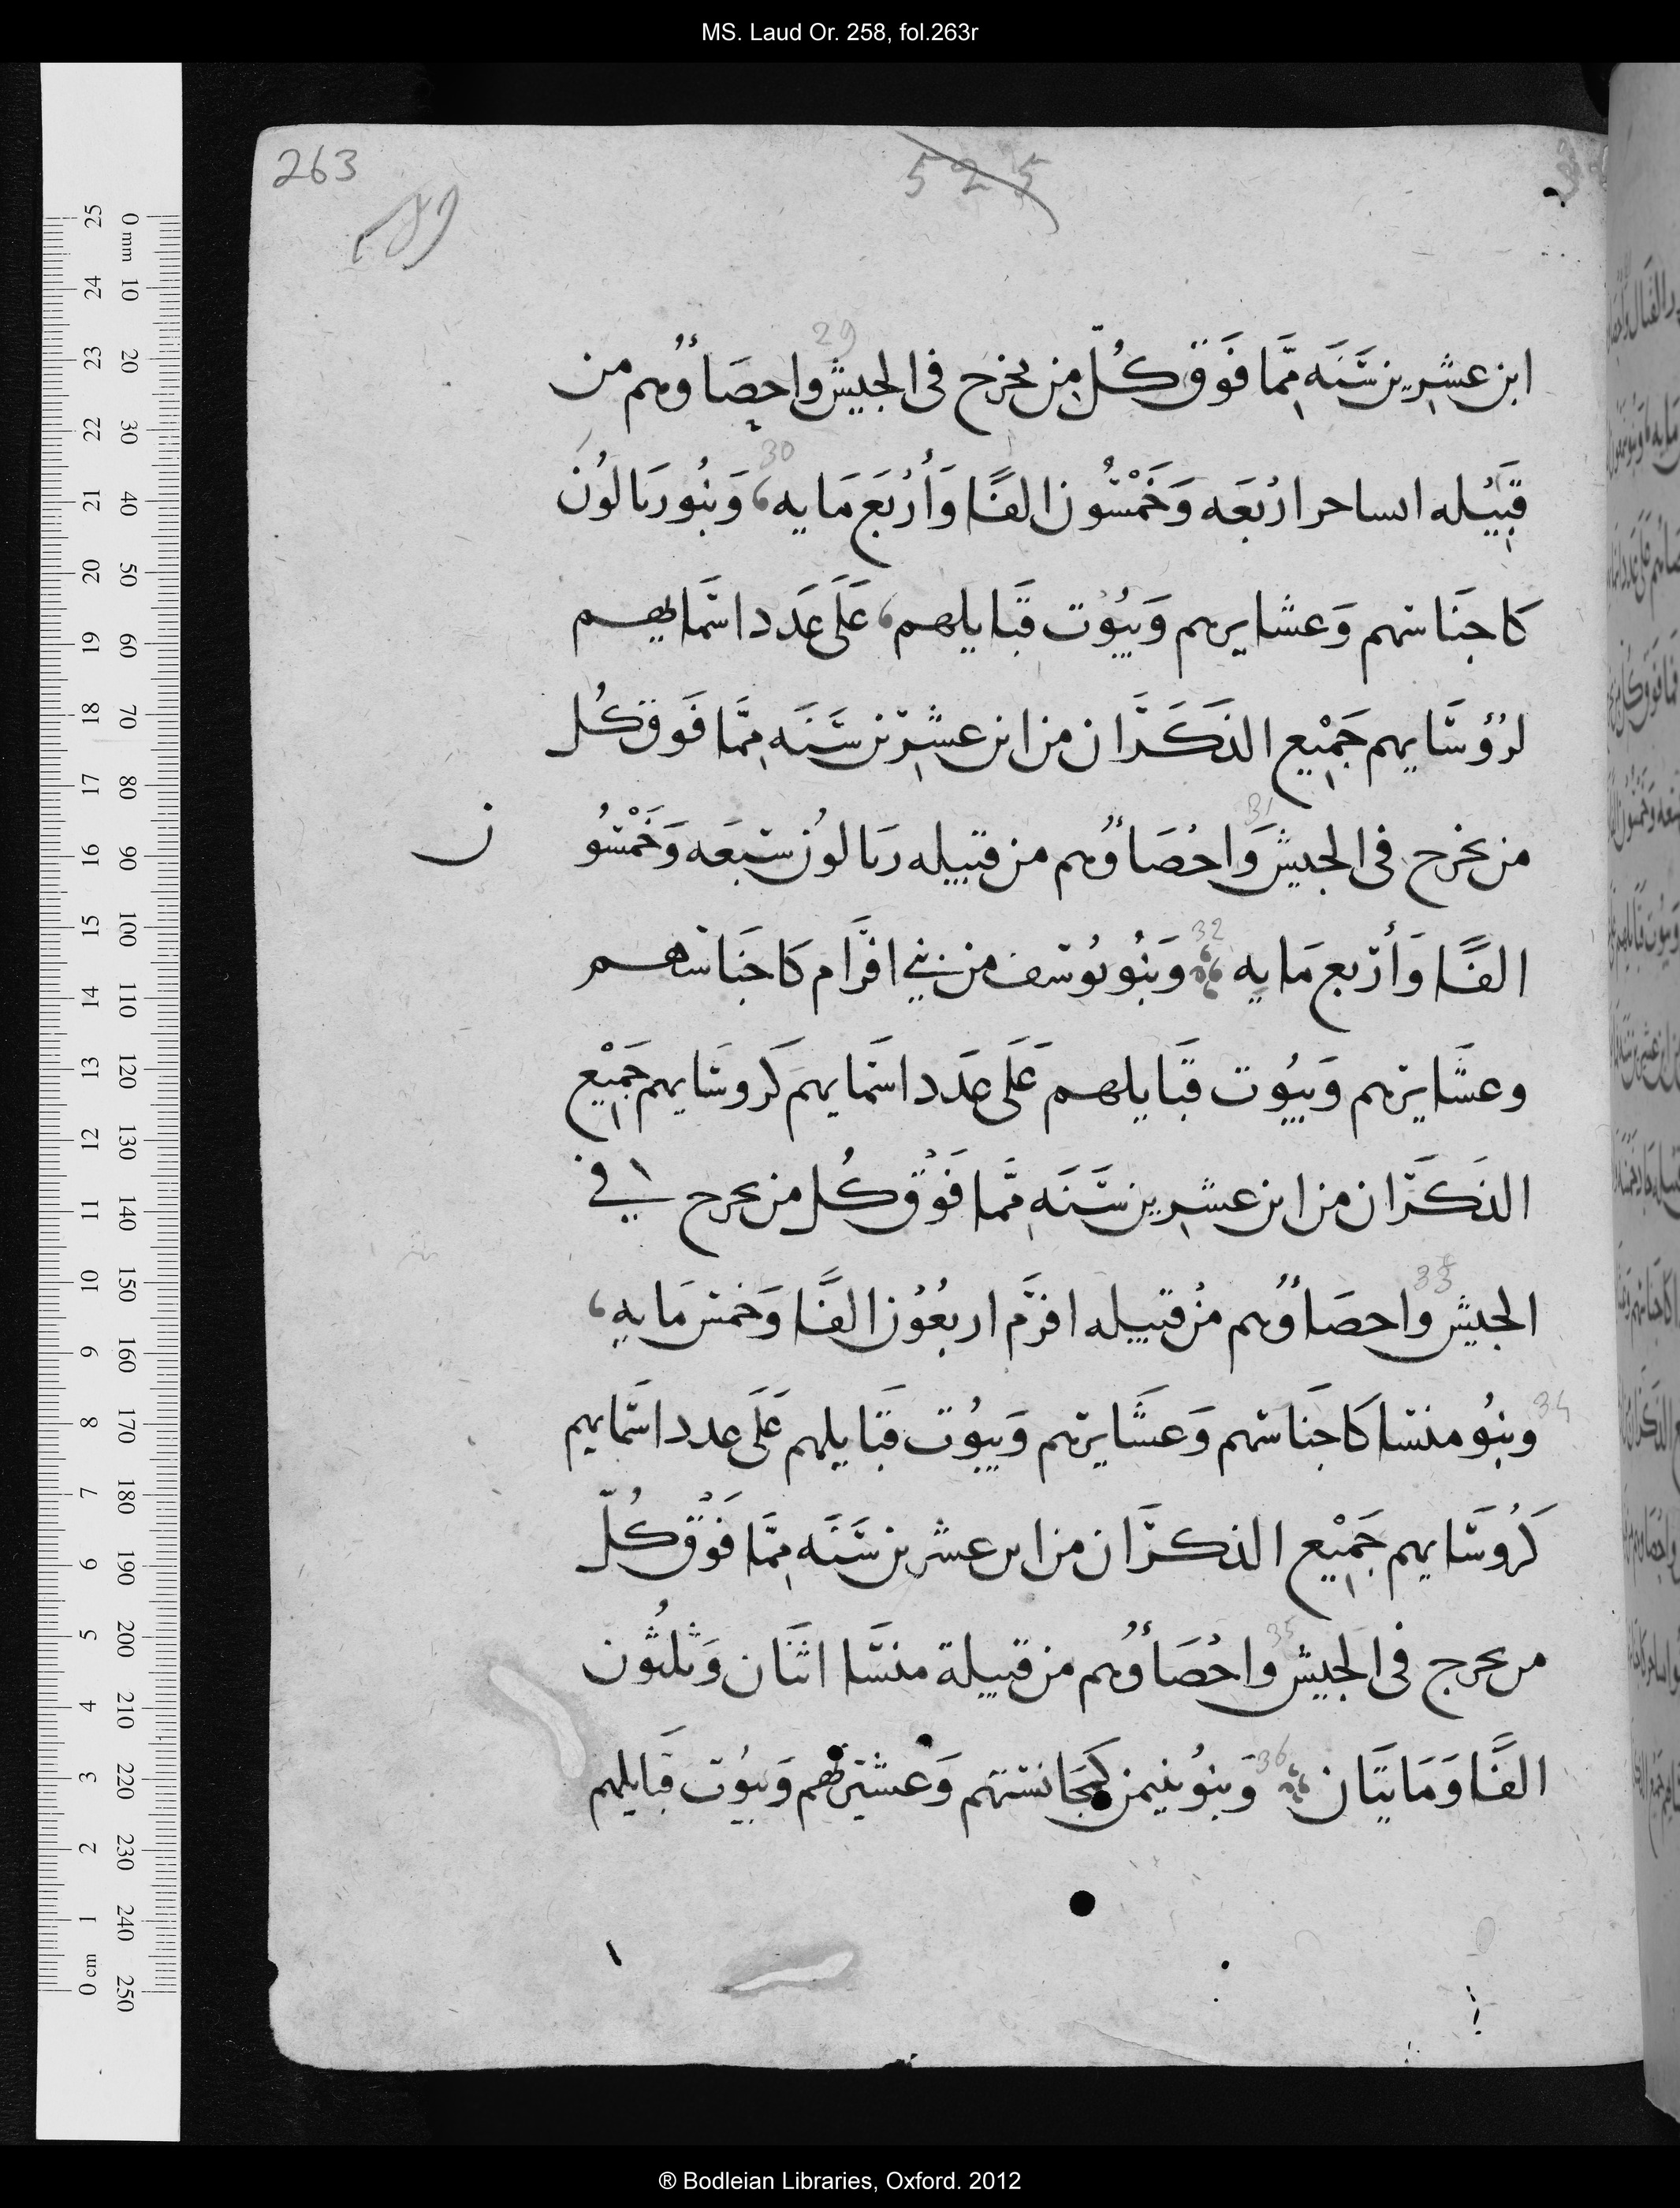 MS. Laud Or. 258, fol.263r
263
525
29
ابن عشرين سَنَه مِمَّا فَوق كُلّ مِن يخرج فى الجيش واحصَاؤُهم من
30
قَبِيْله اساحر ارْبعَه وَخَمْسُون الفًا وَأرْبَع مَايه، وَبنُو زبالونَ
كاجنَاسهم وَعشايرهم وَبيُوت قبَايلهم، عَلَى عَدَد اسَمايهم
لرُؤسَايهم جَمْيِع الذَكَرَان من ابن عشرِين سَنَه مِمَّا فَوق كُل
31
من يخرج فى الجيشَ وَاحْصَاؤُهم من قبيله زبالون سبعَه وَخَمْسُون
32
الفًا وَأربع مَايه وَبنُو يُوسف من بني افرَام كاجنَاسهم
وعشَايرهم وَبيُوت قَبايلهم عَلَى عَدَد اسَمايهم كَروسَايهم جَمْيِع
الذَكَرَان من ابن عشرين سَنَه مِمَّا فَوْق كُل من يخرج في
33
الجيش واحصَاؤُهم مْن قبيله افرَم اربعُوْن الفًا وَخمس مَايهِ،
34
وبنُو منسا كاجنَاسهم وَعشَايرهم وَبيُوت قَبَايلهم عَلَى عدد اسَمايهم
كَرُوسَايهم جَمْيِع الذكرَان من ابن عشرين سَنَه مِمَّا فَوْق كُلّ
35
من يخرج فى الجيش واحْصَاؤُهم من قبيلة منسَّا اثنَان وَثلثُون
36
الفًا وَمَايتَان وَبنوُ بنيمن كمجَانستهم وَعشيرتهم وَبيُوت قَبايلهم
® Bodleian Libraries, Oxford. 2012